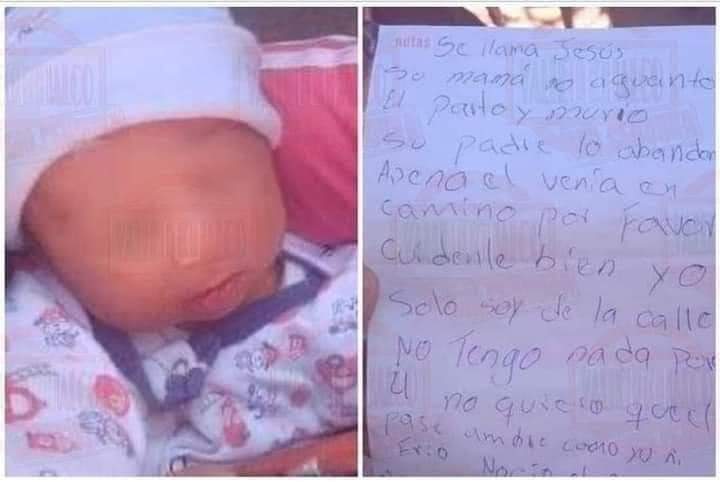 notas Se llama Jesús
Su mamá no aguanto
El parto y murio
su padre lo abandon
Apena el venia en
camino por Favor
Cuidenle bien yo
Solo soy de la calle
No Tengo nada por
el no quiero que el
pase ambre como yo ni
Frio